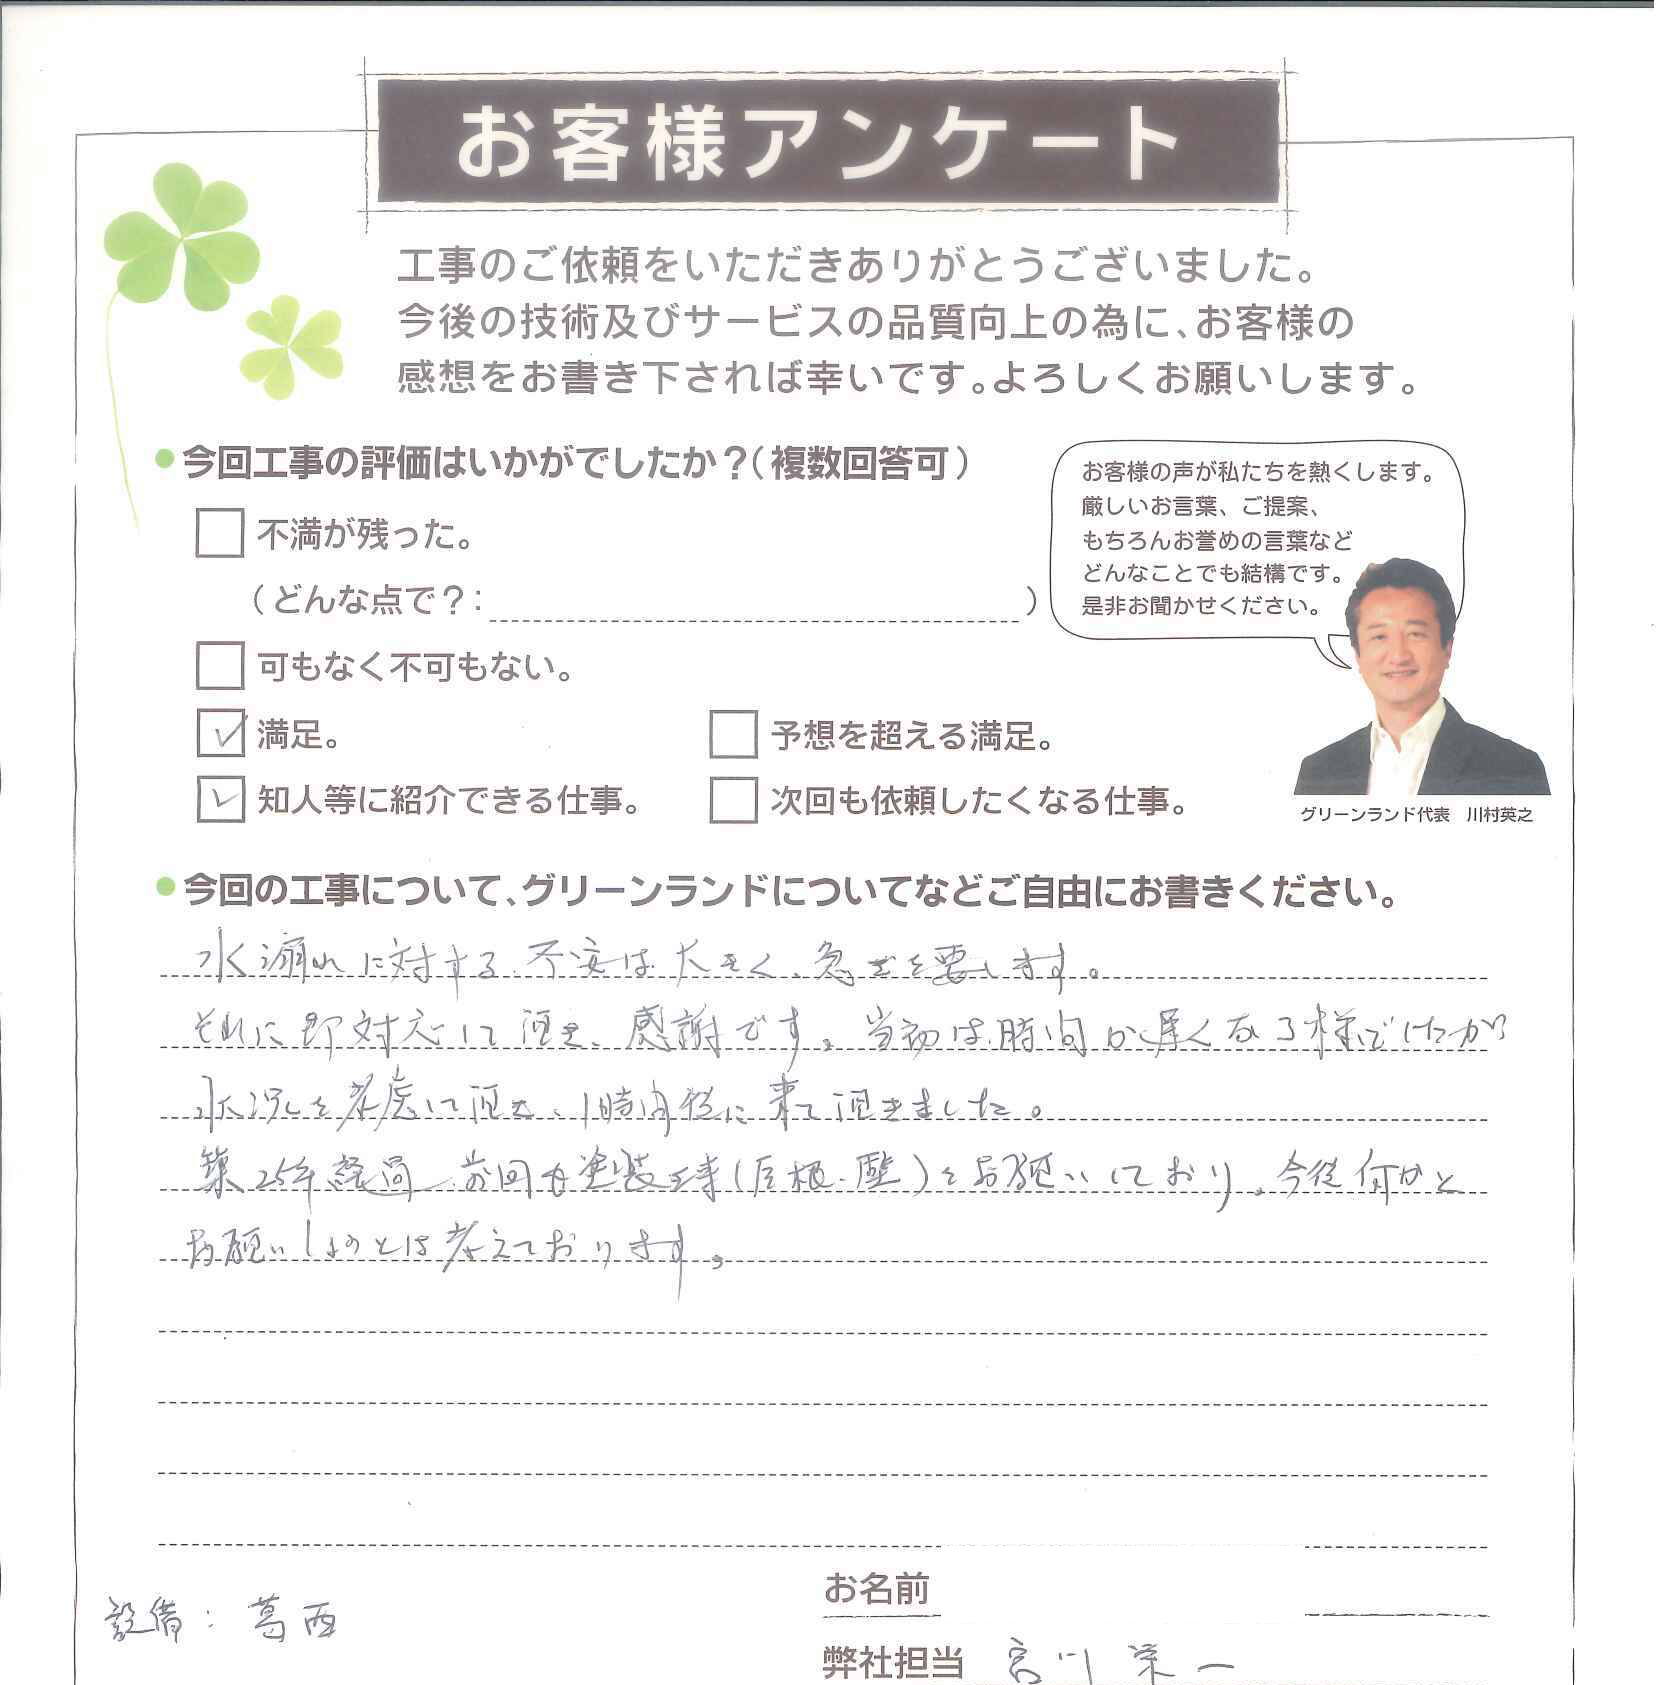 お客様アンケート
工事のご依頼をいただきありがとうございました。
今後の技術及びサービスの品質向上の為に、お客様の
感想をお書き下されば幸いです。よろしくお願いします。
今回工事の評価はいかがでしたか？（複数回答可）
不満が残った。
（どんな点で？：　　　）
可もなく不可もない。
満足。
予想を超える満足。
知人等に紹介できる仕事。
次回も依頼したくなる仕事。
お客様の声が私たちを熱くします。
厳しいお言葉、ご提案、
もちろんお誉めの言葉など
どんなことでも結構です。
是非お聞かせください。
グリーンランド代表　川村英之
今回の工事について、グリーンランドについてなどご自由にお書きください。
水漏れに対する不安は大きく、急ぎを要します。
それに即対応して頂き、感謝です。当初は時間が遅くなる様でしたが
状況を考慮して頂き、1時間程に来て頂きました。
築25年経過、前回も塗装工事(屋根・壁)をお願いしており、今後何かと
お願いしようとは考えております。
お名前
設備：葛西
弊社担当　宮川栄一